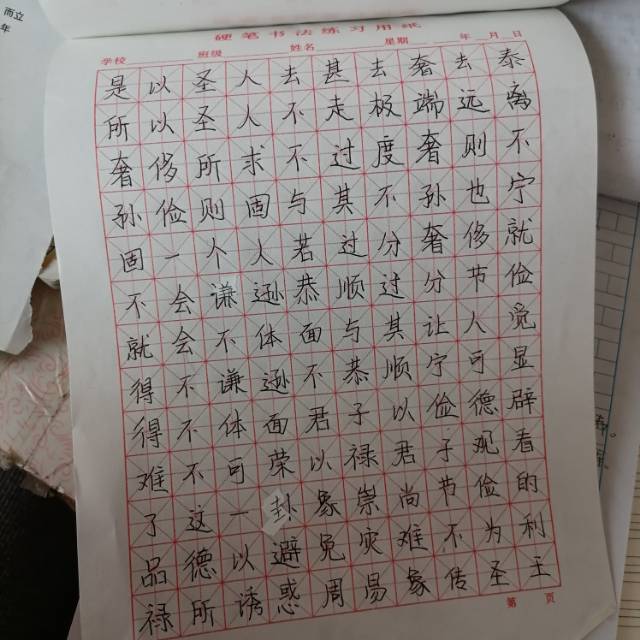 而立
年
硬笔书法练习用纸
学校 班级 姓名 星期 年 月 日
是以圣人去甚去奢去泰
所以圣人不走极端远离
奢侈所求不过度奢则不
孙俭则固与其不孙也宁
固一个人若过分奢侈就
不会谦逊恭顺过分节俭
就会不体面与其让人觉
得不谦逊不恭顺宁可显
得不体面君子以俭德辟
难不可荣以禄君子观看
了这一卦象崇尚节俭的
品德以避免灾难不为利
禄所诱惑周易象传圣主
第 页